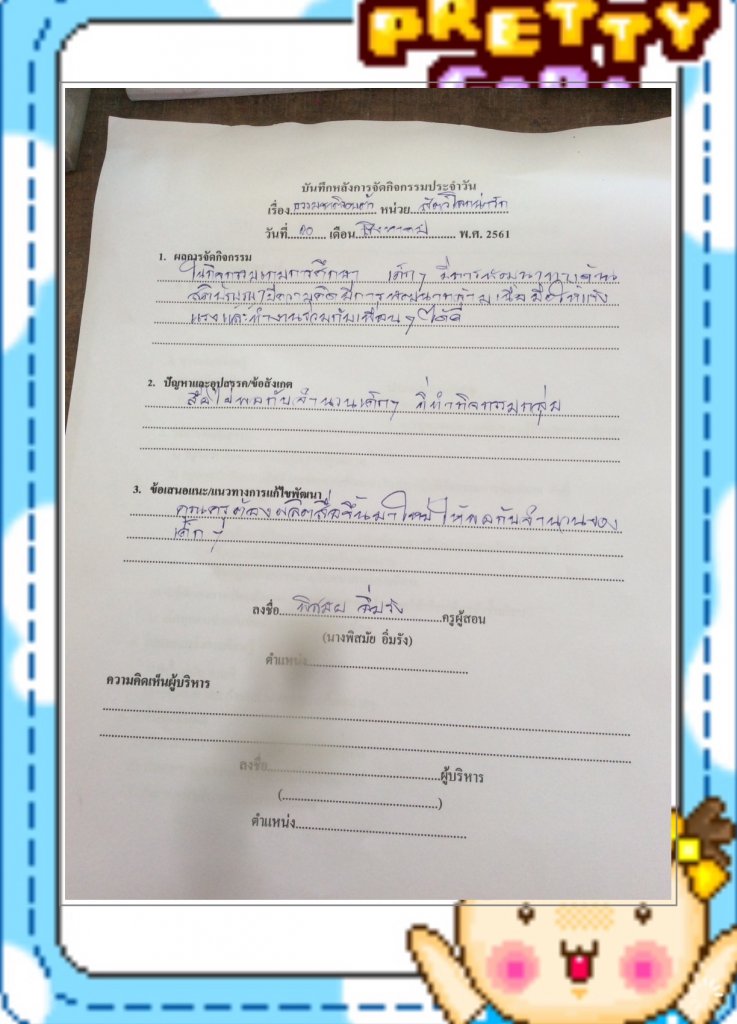 PRETTY
บันทึกหลังการจัดกิจกรรมประจำวัน
เรื่อง ธรรมชาติรอบตัว หน่วย สัตว์โลกน่ารัก
วันที่ 20 เดือน สิงหาคม พ.ศ. 2561
1. ผลการจัดกิจกรรม
ในกิจกรรมเกมการศึกษา เด็กๆ มีการพัฒนาทางด้าน
สติปัญญามีความคิด มีการพัฒนากล้ามเนื้อมือให้แข็ง
แรงและทำงานร่วมกับเพื่อนๆ ได้ดี
2. ปัญหาและอุปสรรค/ข้อสังเกต
สื่อไม่พอกับจำนวนเด็กๆ ที่ทำกิจกรรมกลุ่ม
3. ข้อเสนอแนะ/แนวทางการแก้ไขพัฒนา
คุณครูต้องผลิตสื่อขึ้นมาใหม่ให้พอกับจำนวนของ
เด็กๆ
ลงชื่อ พิสมัย อิ่มรัง ครูผู้สอน
(นางพิสมัย อิ่มรัง)
ตำแหน่ง
ความคิดเห็นผู้บริหาร
ลงชื่อ ผู้บริหาร
( )
ตำแหน่ง